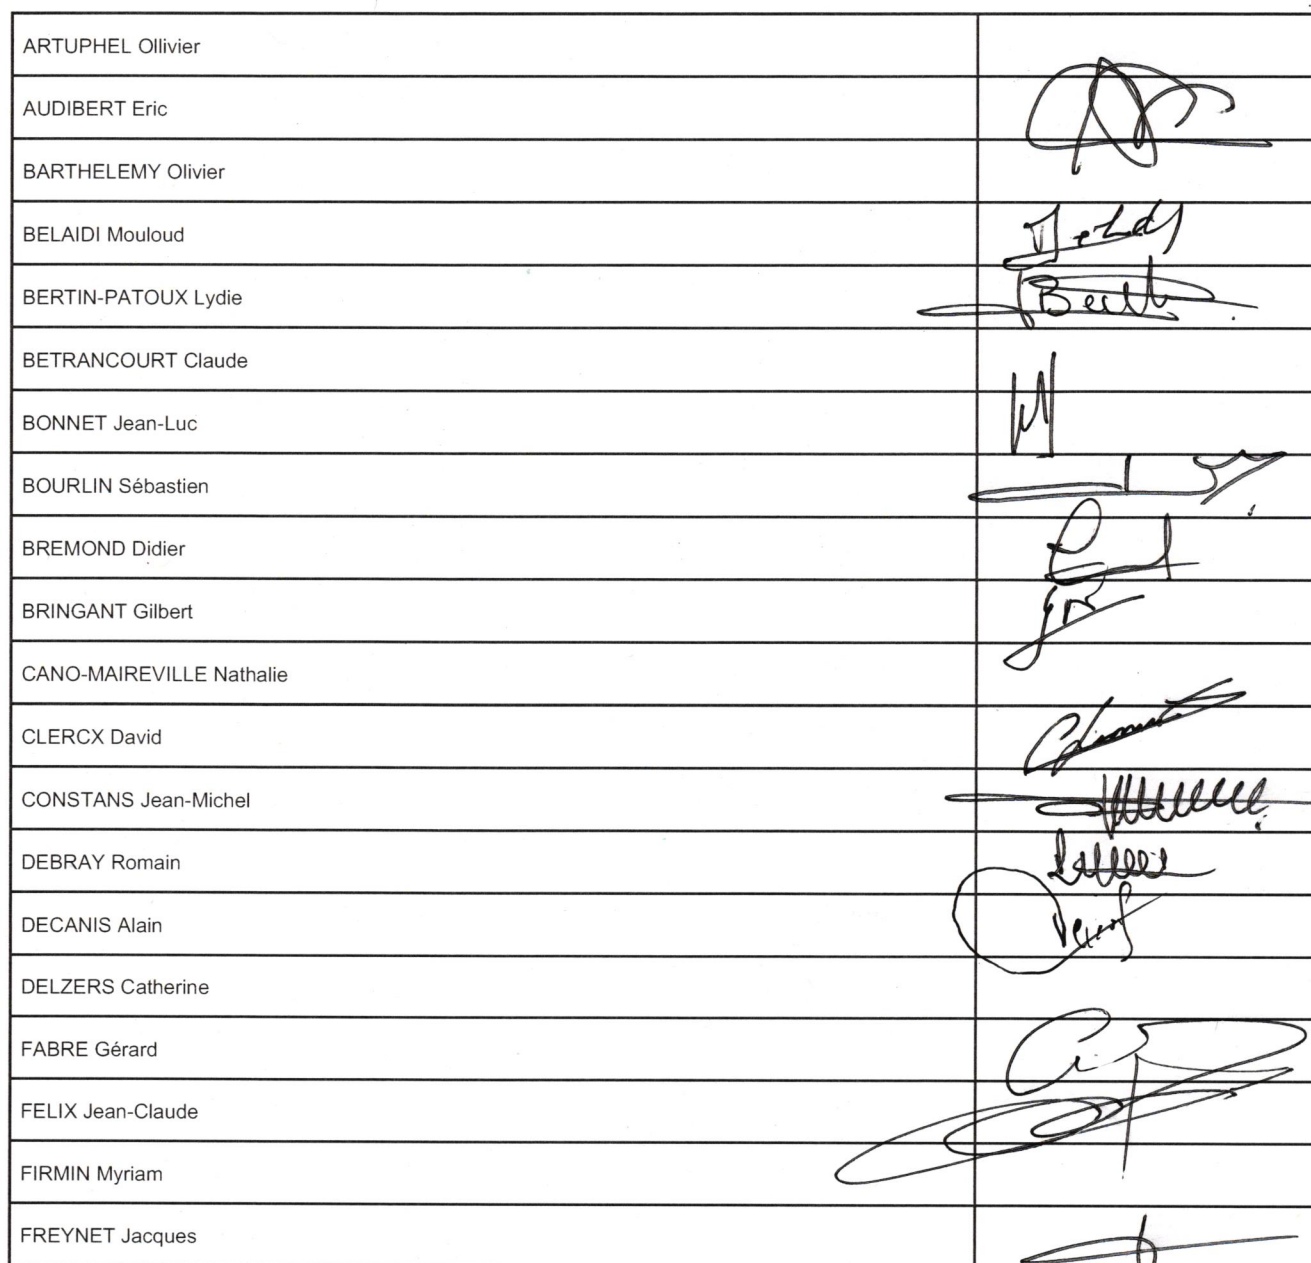 ARTUPHEL Ollivier
AUDIBERT Eric
BARTHELEMY Olivier
BELAIDI Mouloud
BERTIN-PATOUX Lydie
BETRANCOURT Claude
BONNET Jean-Luc
BOURLIN Sébastien
BREMOND Didier
BRINGANT Gilbert
CANO-MAIREVILLE Nathalie
CLERCX David
CONSTANS Jean-Michel
DEBRAY Romain
DECANIS Alain
DELZERS Catherine
FABRE Gérard
FELIX Jean-Claude
FIRMIN Myriam
FREYNET Jacques